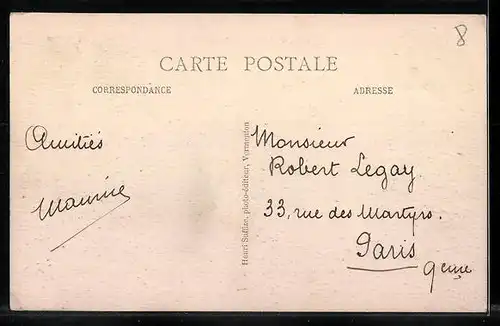 8
CARTE POSTALE
CORRESPONDANCE
ADRESSE
Amitiés
Maurice
Henri Suffize, photo-éditeur, Vermenton
Monsieur
Robert Legay.
33, rue des Martyrs.
Paris
9eme